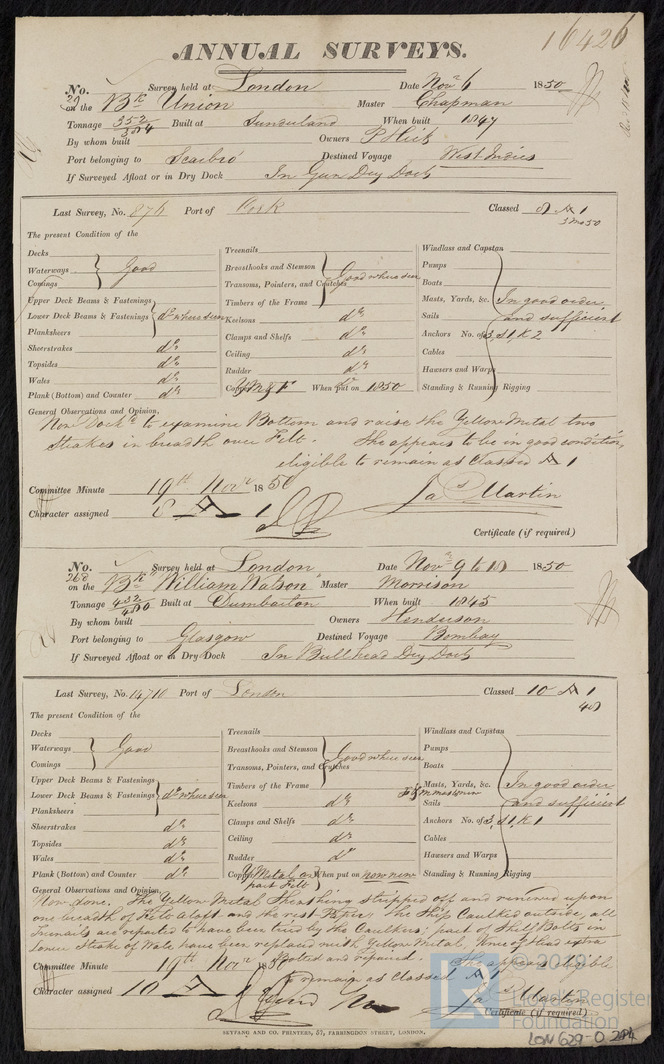 16426
ANNUAL SURVEYS.
No. Survey held at London Date Novr 6 1850
on the Bk Union Master Chapman
Tonnage 352/384 Built at Sunderland When built 1847
By whom built Owners P Hick
Port belonging to Scarbro' Destined Voyage West Indies
If Surveyed Afloat or in Dry Dock In Gun Dry Dock
Last Survey, No. 876 Port of Cork Classed 8 A 1
3 mo 50
The present Condition of the
Decks
Waterways } Good
Comings
Upper Deck Beams & Fastenings
Lower Deck Beams & Fastenings } do where seen
Planksheers
Sheerstrakes do
Topsides do
Wales do
Plank (Bottom) and Counter do
Treenails
Breasthooks and Stemson } Good where seen
Transoms, Pointers, and Crutches
Timbers of the Frame
Keelsons do
Clamps and Shelfs do
Ceiling do
Rudder do
Copper Y M & F When put on 1850
Windlass and Capstan
Pumps
Boats
Masts, Yards, &c. In good order
Sails and sufficient
Anchors No. of 3, S 1, K 2
Cables
Hawsers and Warps
Standing & Running Rigging
General Observations and Opinion,
Now Dockd to examine Bottom and raise the Yellow Metal two
Strakes in breadth over Felt. She appears to be in good condition,
eligible to remain as Classed A 1
Committee Minute 19th Novr 1850
Character assigned 8 A 1 Jas Martin
Certificate (if required)
No. Survey held at London Date Novr 9 to 18 1850
on the Bk "William Watson" Master Morrison
Tonnage 432/480 Built at Dumbarton When built 1845
By whom built Owners Henderson
Port belonging to Glasgow Destined Voyage Bombay
If Surveyed Afloat or in Dry Dock In Bullhead Dry Dock
Last Survey, No. 14710 Port of London Classed 10 A 1
The present Condition of the
Decks
Waterways } Good
Comings
Upper Deck Beams & Fastenings
Lower Deck Beams & Fastenings } do where seen
Planksheers
Sheerstrakes do
Topsides do
Wales do
Plank (Bottom) and Counter do
Treenails
Breasthooks and Stemson } Good where seen
Transoms, Pointers, and Crutches
Timbers of the Frame
Keelsons do
Clamps and Shelfs do
Ceiling do
Rudder do
Copper Y Metal on part Felt When put on now new
Windlass and Capstan
Pumps
Boats
Masts, Yards, &c. In good order
Sails and sufficient
Anchors No. of 3, S 1, K 1
Cables
Hawsers and Warps
Standing & Running Rigging
General Observations and Opinion,
Now done. The Yellow Metal Sheathing stripped off and renewed upon
one breadth of Felt aloft and the rest Paper, the Ship Caulked outside, all
Treenails are reported to have been tried by the Caulkers; part of Shelf Bolts in
lower Strake of Wale have been replaced with Yellow Metal, Knee of Head extra
Bolted and repaired. She appears eligible
Committee Minute 19th Novr 1850
to remain as Classed A 1
Character assigned 10 A 1 Jas Martin
Certificate (if required)
SEYFANG AND CO. PRINTERS, 57, FARRINGDON STREET, LONDON.
© 2019
Lloyd's Register
Foundation
LON 629-0274